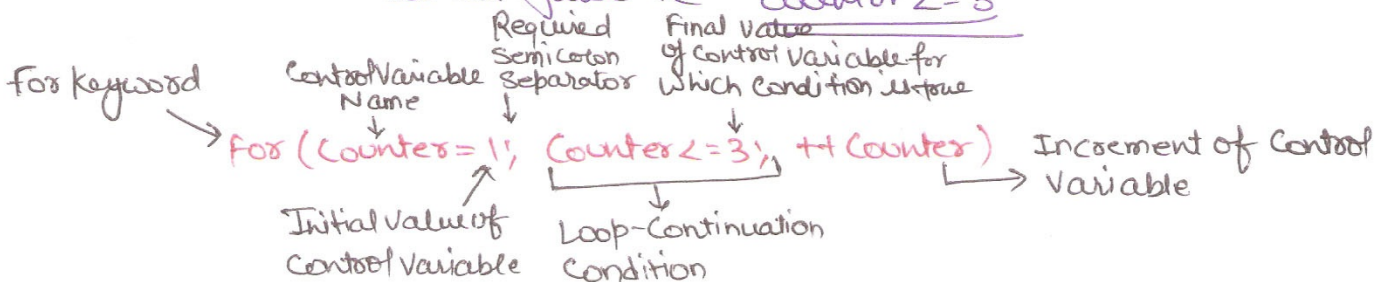 Counter <= 3
For Keyword
Control Variable
Name
Required
Semicolon
Separator
Final value
of control variable for
which condition is true
For (Counter = 1; Counter <= 3; ++ Counter)
Increment of Control
Variable
Initial value of
Control Variable
Loop-Continuation
Condition